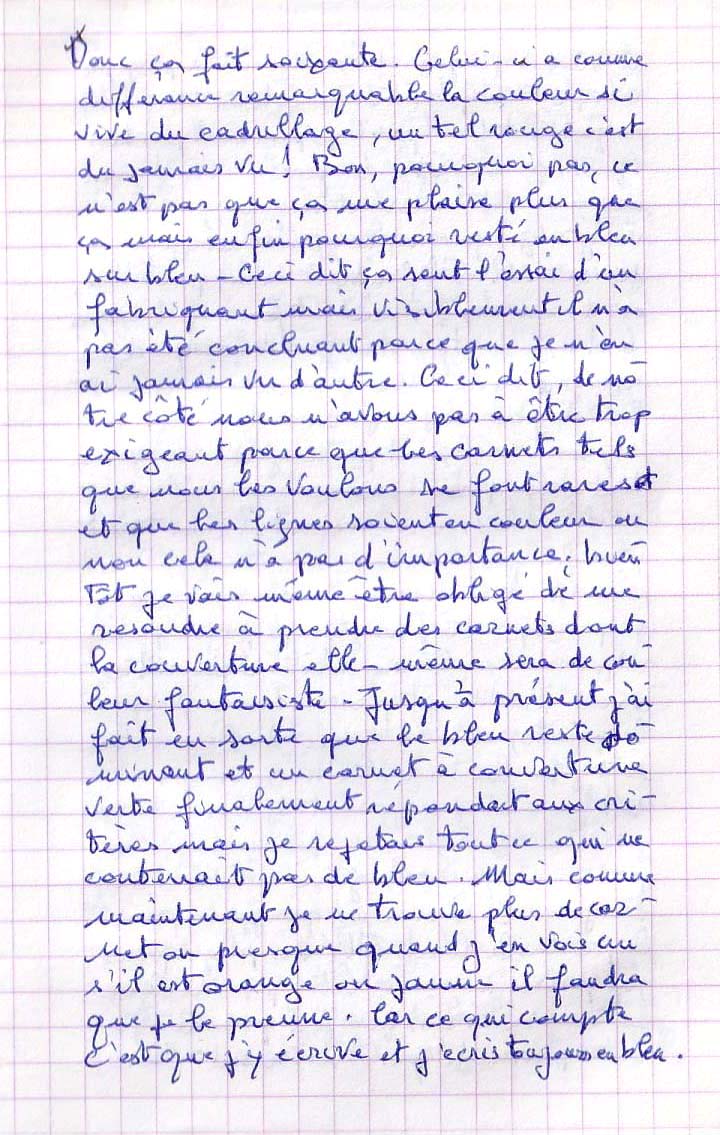 Donc ça fait soixante. Celui-ci a comme
différence remarquable la couleur si
vive du cadrillage, un tel rouge c'est
du jamais vu! Bon, pourquoi pas, ce
n'est pas que ça me plaise plus que
ça mais enfin pourquoi resté en bleu
sur bleu - Ceci dit ça sent l'essai d'un
fabriquant mais visiblement il n'a
pas été concluant parce que je n'en
ai jamais vu d'autre. Ceci dit, de nô
tre côté nous n'avons pas à être trop
exigeant parce que les carnets tels
que nous les voulons se font rares et
et que les lignes soient en couleur ou
non cela n'a pas d'importance,
Et je vais même être obligé de me
resoudre à prendre des carnets dont
la couverture elle-même sera de cou-
leur fantaisiste - Jusqu'à présent j'ai
fait en sorte que le bleu reste do-
minant et un carnet à couverture
verte finalement répondait aux cri-
tères mais je rejetais tout ce qui ne
contenait pas de bleu. Mais comme
maintenant je ne trouve plus de car-
net ou presque quand j'en vois un
s'il est orange ou jaune il faudra
que je le prenne. Car ce qui compte
c'est que j'y écrive et j'ecris toujours en bleu.